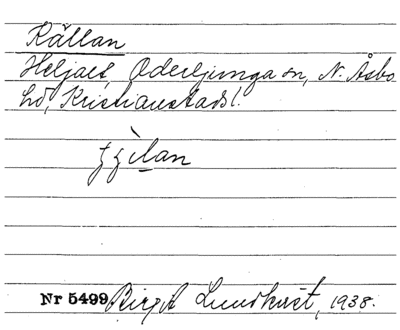 Källan
Heljalt, Oderljunga sn, N. Åsbo
hd, Kristianstads l.
Nr 5499 Birgit Lundkvist, 1938.